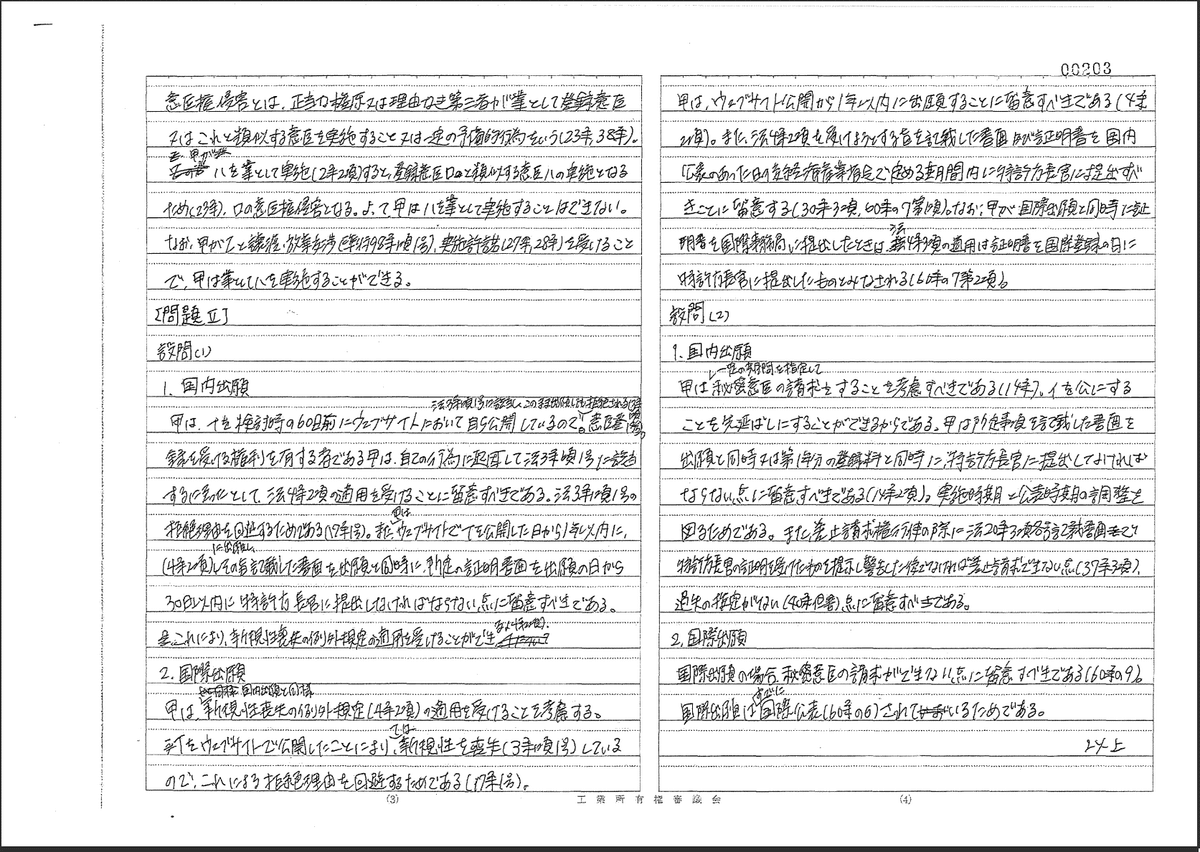 00203
意匠権侵害とは、正当な権原又は理由なき第三者が業として登録意匠
又はこれと類似する意匠を実施すること又は一定の予備的行為をいう(23条、38条)。
甲が ハを業として実施(2条2項)すると、登録意匠ロと類似する意匠ハの実施となる
ため(23条)、ロの意匠権侵害となる。よって甲はハを業として実施することはできない。
なお、甲が乙と譲渡・放棄交渉(準特98条1項1号)、実施許諾(27条、28条)を受けること
で、甲は業としてハを実施することができる。
[問題Ⅱ]
設問(1)
1. 国内出願
法3条1項1号に該当し、このまま出願しても拒絶される(17条1号)
甲は、イを検討時の60日前にウェブサイトにおいて自ら公開しているので。意匠登
録を受ける権利を有する者である甲は、自己の行為に起因して法3条1項1号に該当
するに至ったとして、法4条2項の適用を受けることに留意すべきである。法3条1項1号の
拒絶理由を回避するためである(17条1号)。また、甲は ウェブサイトでイを公開した日から1年以内に、
(4条2項)に出願し その旨記載した書面を出願と同時に、所定の証明書面を出願の日から
30日以内に特許庁長官に提出しなければならない点に留意すべきである。
これにより、新規性喪失の例外規定の適用を受けることができ
2. 国際出願
国内出願と同様
甲は、新規性喪失の例外規定(4条2項)の適用を受けることを考慮する。
イをウェブサイトで公開したことにより、では 新規性を喪失(3条1項1号)している
ので、これによる拒絶理由を回避するためである(17条1号)。
(3)
工業所有権審議会
甲は、ウェブサイト公開から1年以内に出願することに留意すべきである(4条
2項)。また、法4条2項を受けようとする旨を記載した書面及び証明書を国内
公表のあった日の後経済産業省令で定める期間内に特許庁長官に提出すべ
きことに留意する(30条3項、60条の7第1項)。なお、甲が国際出願と同時に証
明書を国際事務局に提出したときは、法4条3項の適用は証明書を国際登録の日に
特許庁長官に提出したものとみなされる(60条の7第2項)。
設問(2)
1. 国内出願
一定の期間を指定して
甲は秘密意匠の請求をすることを考慮すべきである(14条)。イを公にする
ことを先延ばしにすることができるからである。甲は所定事項を記載した書面を
出願と同時又は第1年分の登録料と同時に、特許庁長官に提出しなければ
ならない点に留意すべきである(14条2項)。実施時期と公表時期の調整を
図るためである。また、差止請求権行使の際に法20条3項各号記載書面で
特許庁長官の証明を受けたものを提示し警告した後でなければ差止請求できない点(37条3項)、
過失の推定がない(40条但書)点に留意すべきである。
2. 国際出願
国際出願の場合、秘密意匠の請求ができない点に留意すべきである(60条の9)。
国際出願はすでに国際公表(60条の6)されているためである。
以上
(4)